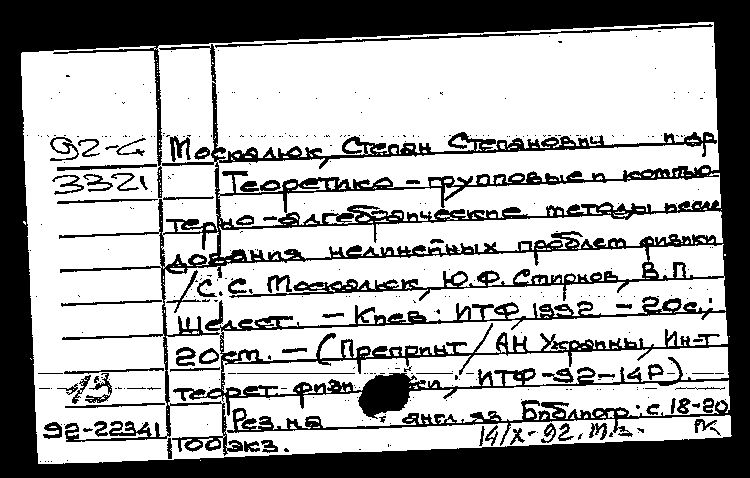 92-4 Москалюк, Степан Степанович и др
3321 Теоретико-групповые и компью-
терно-алгебраические методы иссле
дования нелинейных проблем физики
/С.С. Москалюк, Ю.Ф. Смирнов, В.П.
Шелест. - Киев: ИТФ, 1992 - 20с.;
20см. - (Препринт / АН Украины, Ин-т
13 теорет. физи ки; ИТФ-92-14Р).
Рез. на англ. яз. Библиогр: с. 18-20
92-22341 100 экз. 14/X-92. РК